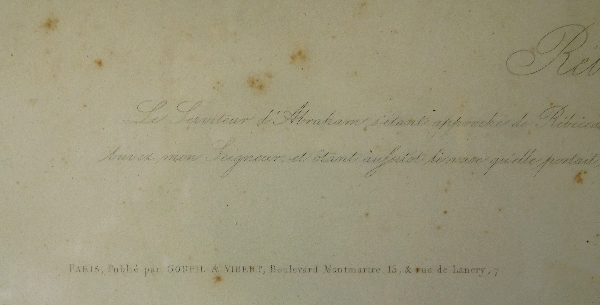 Réb
Le Serviteur d'Abraham s'étant approché de Rébecca
buvez, mon Seigneur, et ôtant aussitot le vase qu'elle portait
PARIS, Publié par GOUPIL & VIBERT, Boulevard Montmartre, 15, & rue de Lancry, 7